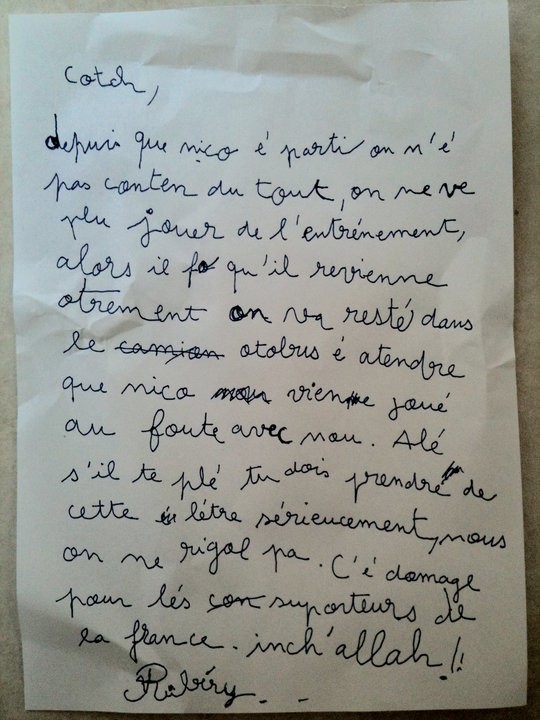 Cotch,
depuis que nico é parti on n'é
pas conten du tout, on ne ve
plu jouer de l'entrénement,
alors il fo qu'il revienne
otrement on va resté dans
le camion otobus é atendre
que nico vienne joué
au foute avec nou. Alé
s'il te plé tu dois prendre de
cette létre sérieucement, nous
on ne rigol pa. C'é domage
pour lés con suporteurs de
la france. inch'allah !!
Ribéry.